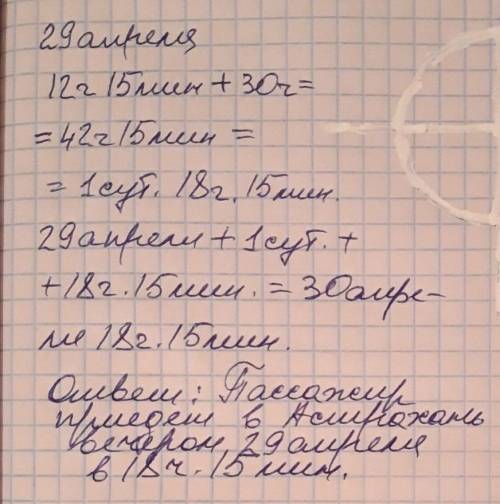 29 апреля
12ч 15мин + 30ч =
= 42ч 15мин =
= 1сут. 18ч. 15мин.
29 апреля + 1сут. +
+ 18ч. 15мин. = 30 апре-
ля 18ч. 15мин.
Ответ: Пассажир
приедет в Астрахань
вечером 29 апреля
в 18ч. 15мин.